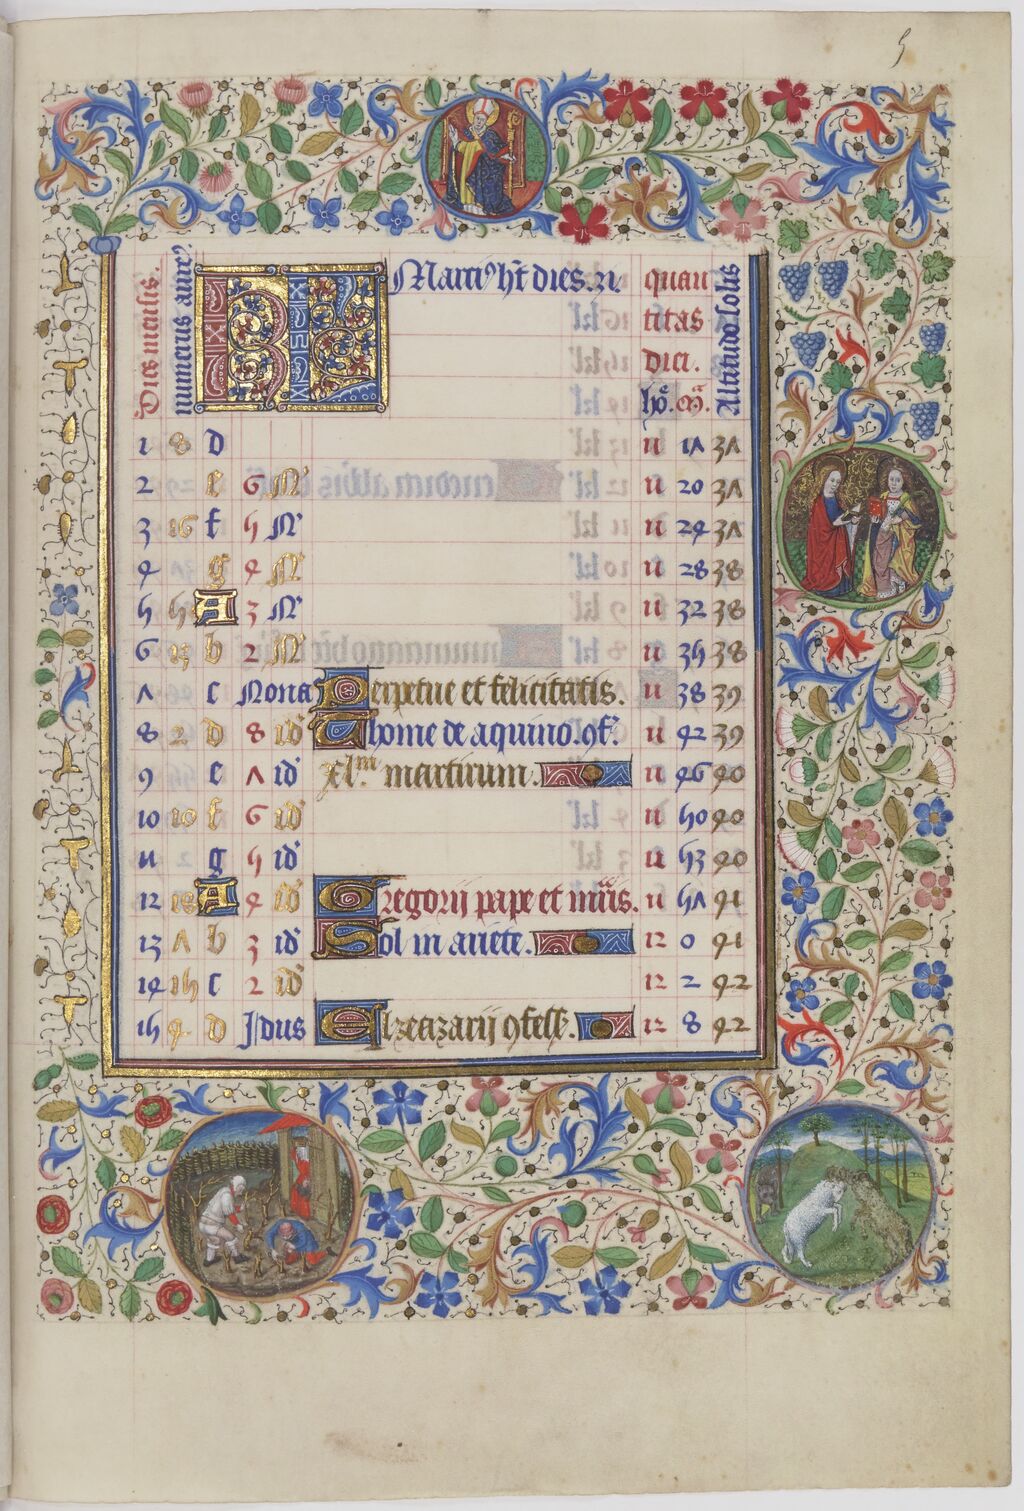 5
Dies mensis.
numerus aureꝰ
KL Marciꝰ ht dies.
quan
titas
diei.
ho. m.
Altitudo solis
1 8 d 11 17 37
2 e 6 N' 11 20 37
3 16 f 5 N' 11 24 37
4 g 4 N' 11 28 38
5 5 A 3 N' 11 32 38
6 13 b 2 N' 11 35 38
7 c Nonas Perpetue et felicitatis. 11 38 39
8 2 d 8 id' Thome de aquino. ꝯf'. 11 42 39
9 e 7 id' xl.m martirum. 11 46 40
10 10 f 6 id' 11 50 40
11 g 5 id' 11 53 40
12 18 A 4 id' Gregorij pape et mris. 11 57 41
13 7 b 3 id' Sol in ariete. 12 0 41
14 15 c 2 id' 12 2 42
15 4 d Idus Elzeazarij ꝯfess'. 12 8 42